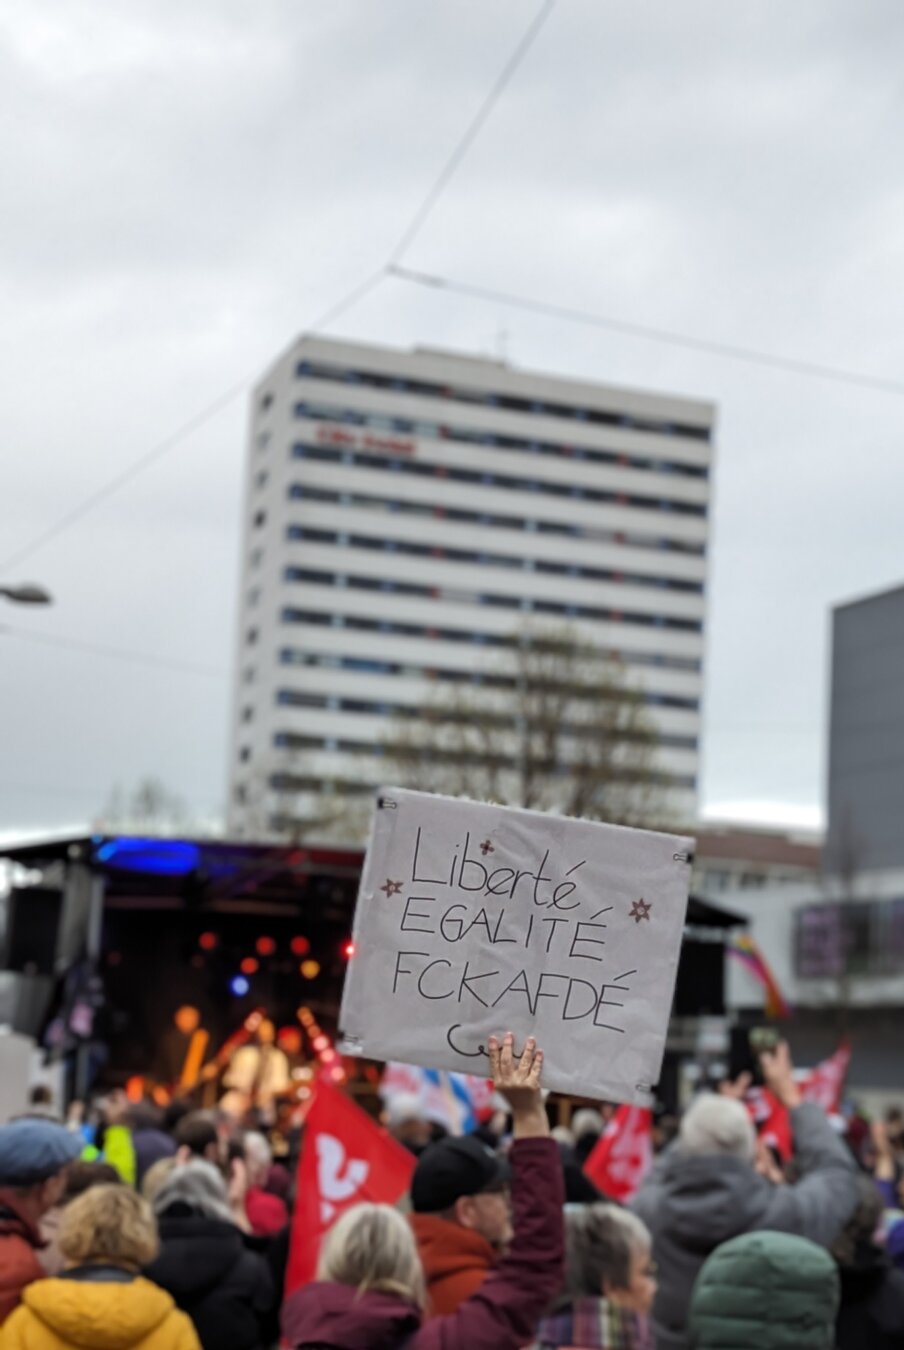 Liberté
EGALITÉ
FCKAFDÉ